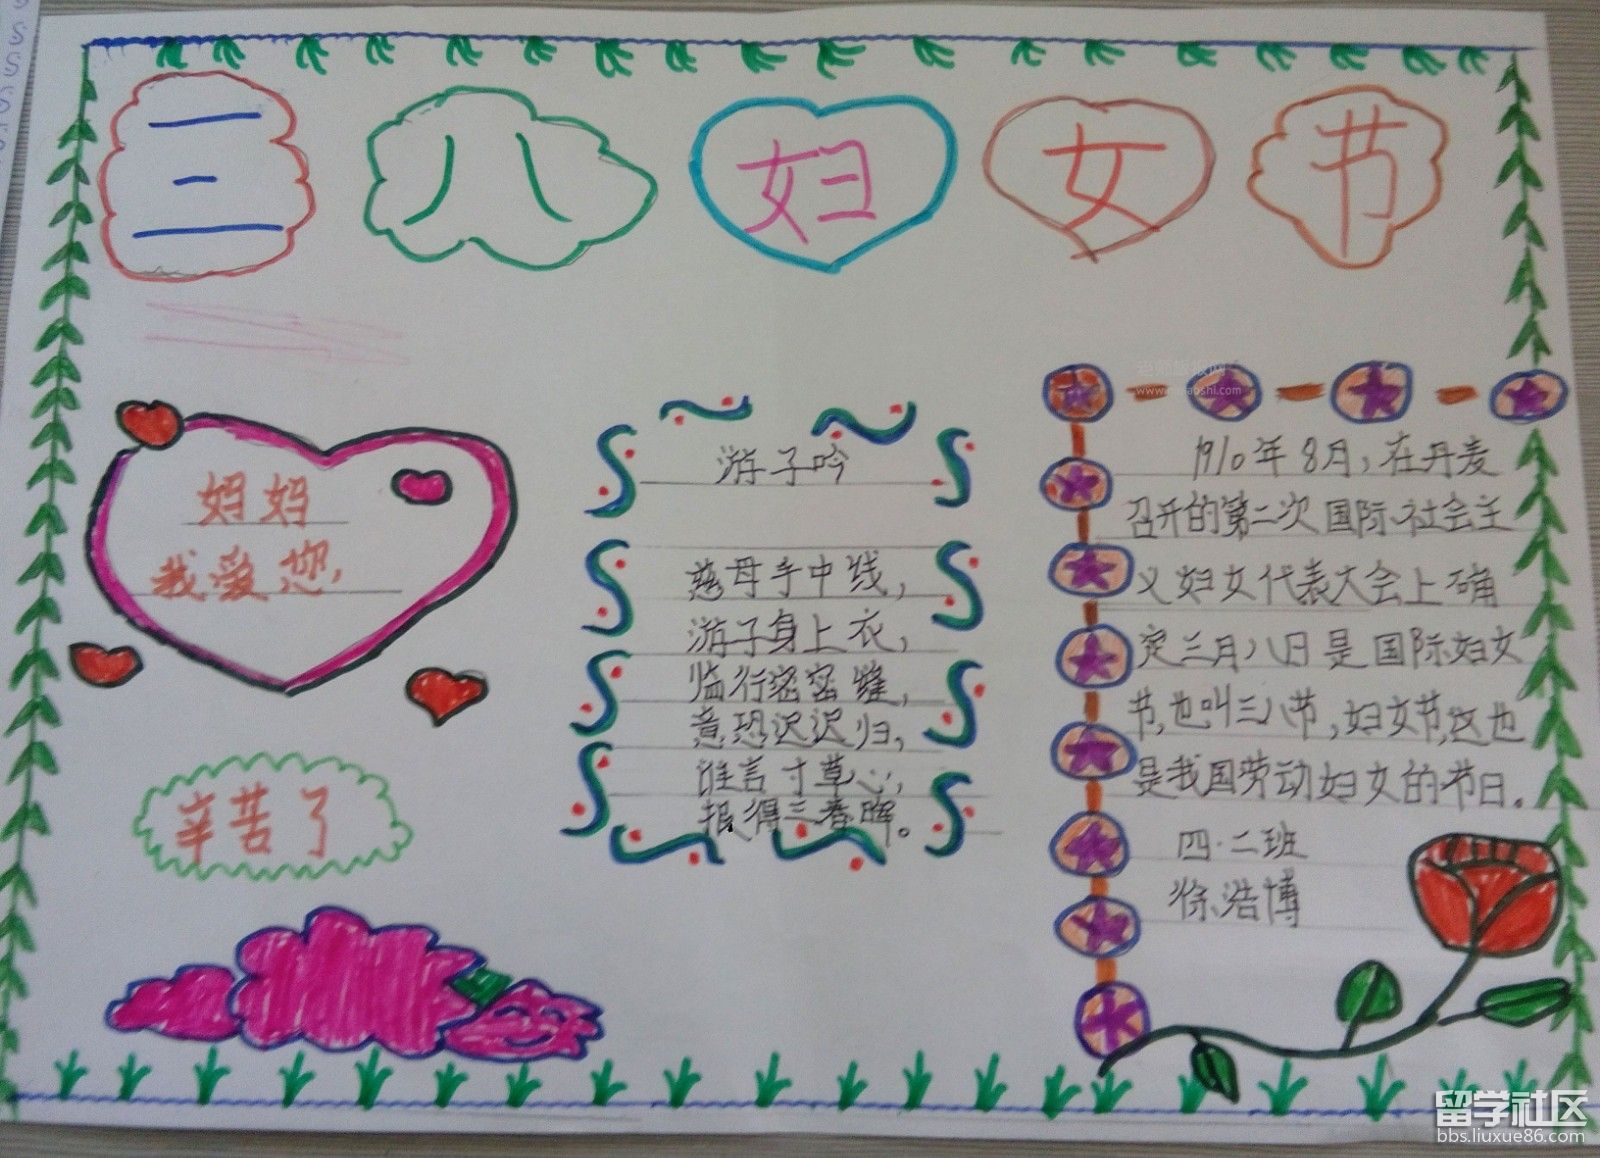 三八妇女节
妈妈
我爱您,
辛苦了
游子吟
慈母手中线,
游子身上衣,
临行密密缝,
意恐迟迟归,
谁言寸草心,
报得三春晖。
1910年8月,在丹麦
召开的第二次国际社会主
义妇女代表大会上确
定三月八日是国际妇女
节,也叫三八节,妇女节,这也
是我国劳动妇女的节日。
四·二班
徐浩博
留学社区
bbs.liuxue86.com